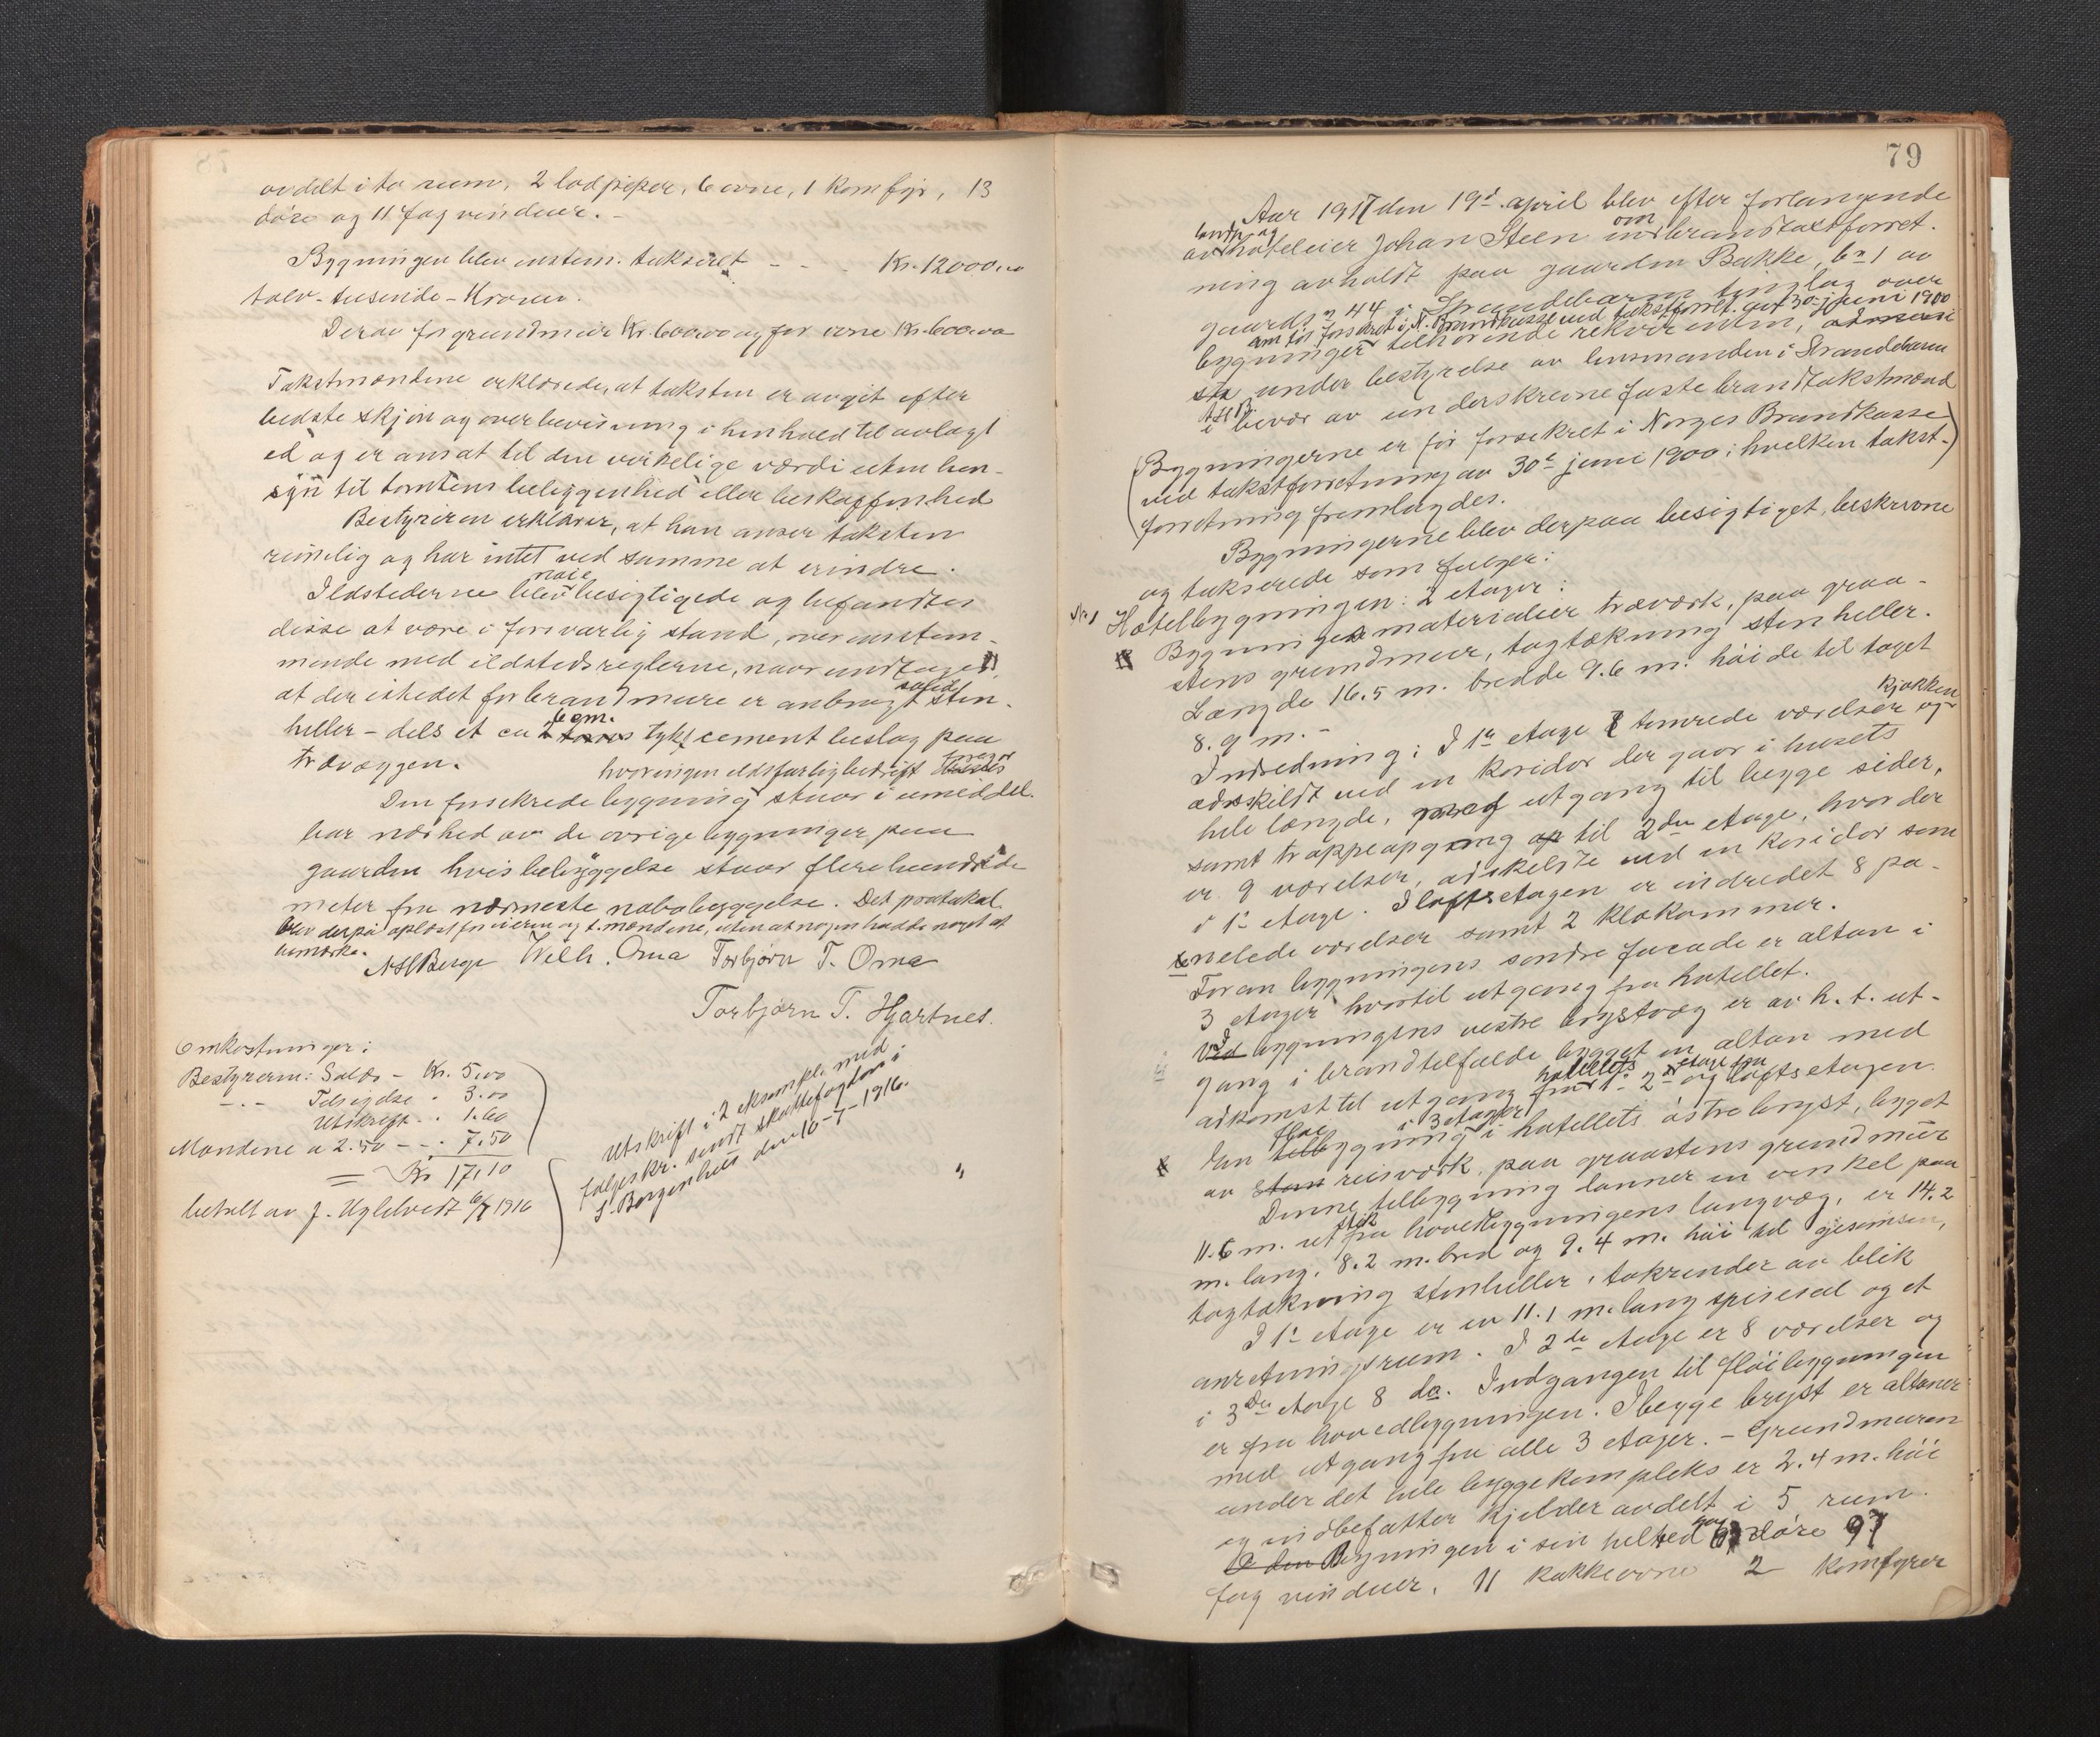 avdelt i to rum, 2 lodpiper, 6 ovne, 1 komfyr, 13
döre og 11 fag vinduer. -
Bygningen blev enstem. taksert - - - Kr. 12000.00
tolv-tusinde-Kroner.
Derav for grundmur Kr. 600.00 og for ovne Kr. 600.00
Takstmændene erklærede, at taksten er avgit efter
bedste skjön og overbevisning i henhold til avlagt
ed og er ansat til den virkelige værdi uten hen-
syn til tomtens beliggenhed eller beskaffenhed
Bestyreren erklærer, at han anser taksten
rimelig og har intet ved samme at erindre.
nöie
Ildstederne blev besigtigede og befandtes
disse at være i forsvarlig stand, overenstem-
mende med ildstedsreglerne, naar undtages,
at der istedet for brandmure er anbragt sten-
heller - dels et ca 6 cm. tykt cement beslag paa
trævæggen.
hvor ingen ildsfarlig bedrift foregår
Den forsikrede bygning staar i umiddel-
bar nærhed av de övrige bygninger paa
gaarden hvis bebyggelse staar flere hundrede
meter fra nærmeste nabobyggelse. Det protokol.
blev derpå oplæst for eieren og t.mændene, uten at nogen hadde noget at
bemærke.
N H Berge Wilh. Oma Torbjørn T. Oma
Torbjørn T. Hjartnes.
Omkostninger:
Bestyreren: Salær - Kr. 5.00
-.- Tilsigelse - 3.00
Utskrift - 1.60
Mændene a 2.50 - - - 7.50
= Kr 17,10
betalt av J. Uglelvedt 6/7 1916
Utskrift i 2 eksempl. med
følgeskr. sendt skattefogden i
S. Bergenhus den 10-7-1916.
79
Aar 1917 den 19de april blev efter forlangende
landh. og om
av hoteleier Johan Steen brandtakstforret-
ning avholdt paa gaarden Bakke, bn 1 av
gaards n 44 i Strandebarm tinglag over
om før forsikret i N. Brandkasse ved takstforretn. av 30 juni 1900
bygninger tilhörende rekvirenten,
under bestyrelse av lensmanden i Strandebarm
i bivær av underskrevne faste brandtakstmænd
(Bygningerne er för forsekret i Norges Brandkasse
ved takstforretning av 30te juni 1900: hvelken takst-)
forretning fremlagdes.
Bygningerne blev derpaa besigtiget, beskrevne
og takserede som fölger:
No. 1 Hotelbygningen: 2 etager:
Bygningens materialier træværk, paa graa-
stens grundmur, tagtækning stenheller.
Længde 16.5 m. bredde 9.6 m. höide til taget
8.9 m. -
kjökken
Indredning: I 1ste etage 7 tömrede værelser og
adskildt ved en koridor der gaar i husets
hele længde, med utgang til begge sider,
samt trappeopgang til 2den etage, hvor der
er 9 værelser, adskelste ved en koridor som
i 1ste etage. I loftsetagen er indredet 8 pa-
nelede værelser samt 2 klækammer.
Foran bygningens söndre facade er altan i
3 etager hvortil utgang fra hotellet.
Ved bygningens vestre brystvæg er av h. t. ut-
gang i brandtilfælde bygget en altan med
adkomst til utgang fra hotellets 1ste 2den etage og loftsetagen.
flöi i 3 etager
En bygning i hotellets östre bryst, bygget
av reisværk, paa graastens grundmur
Denne tilbygning danner en vinkel paa
11.6 m. ut fra hovedbygningens langvæg, er 14.2
m. lang, 8.2 m. bred og 9.4 m. höi til gjesimsen,
tagtækning stenheller, takrender av blik
I 1ste etage er en 11.1 m. lang spisesal og et
anretningsrum. I 2den etage er 8 værelser og
i 3die etage 8 do. Indgangen til flöibygningen
er fra hovedbygningen. I begge bryst er altaner
med utgang fra alle 3 etager. - Grundmuren
under det hele byggekompleks er 2.4 m. höi
og indbefatter kjelder avdelt i 5 rum.
Bygningen i sin helhed har döre 97
fag vinduer, 11 kakkelovne 2 komfyrer